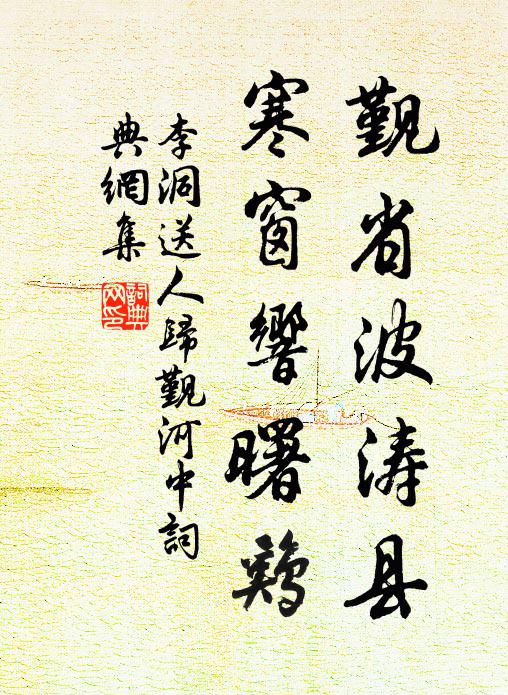 覲省波涛县
寒窗響曙鷄
李洞送人歸覲河中詞
典網集
詞典
网印